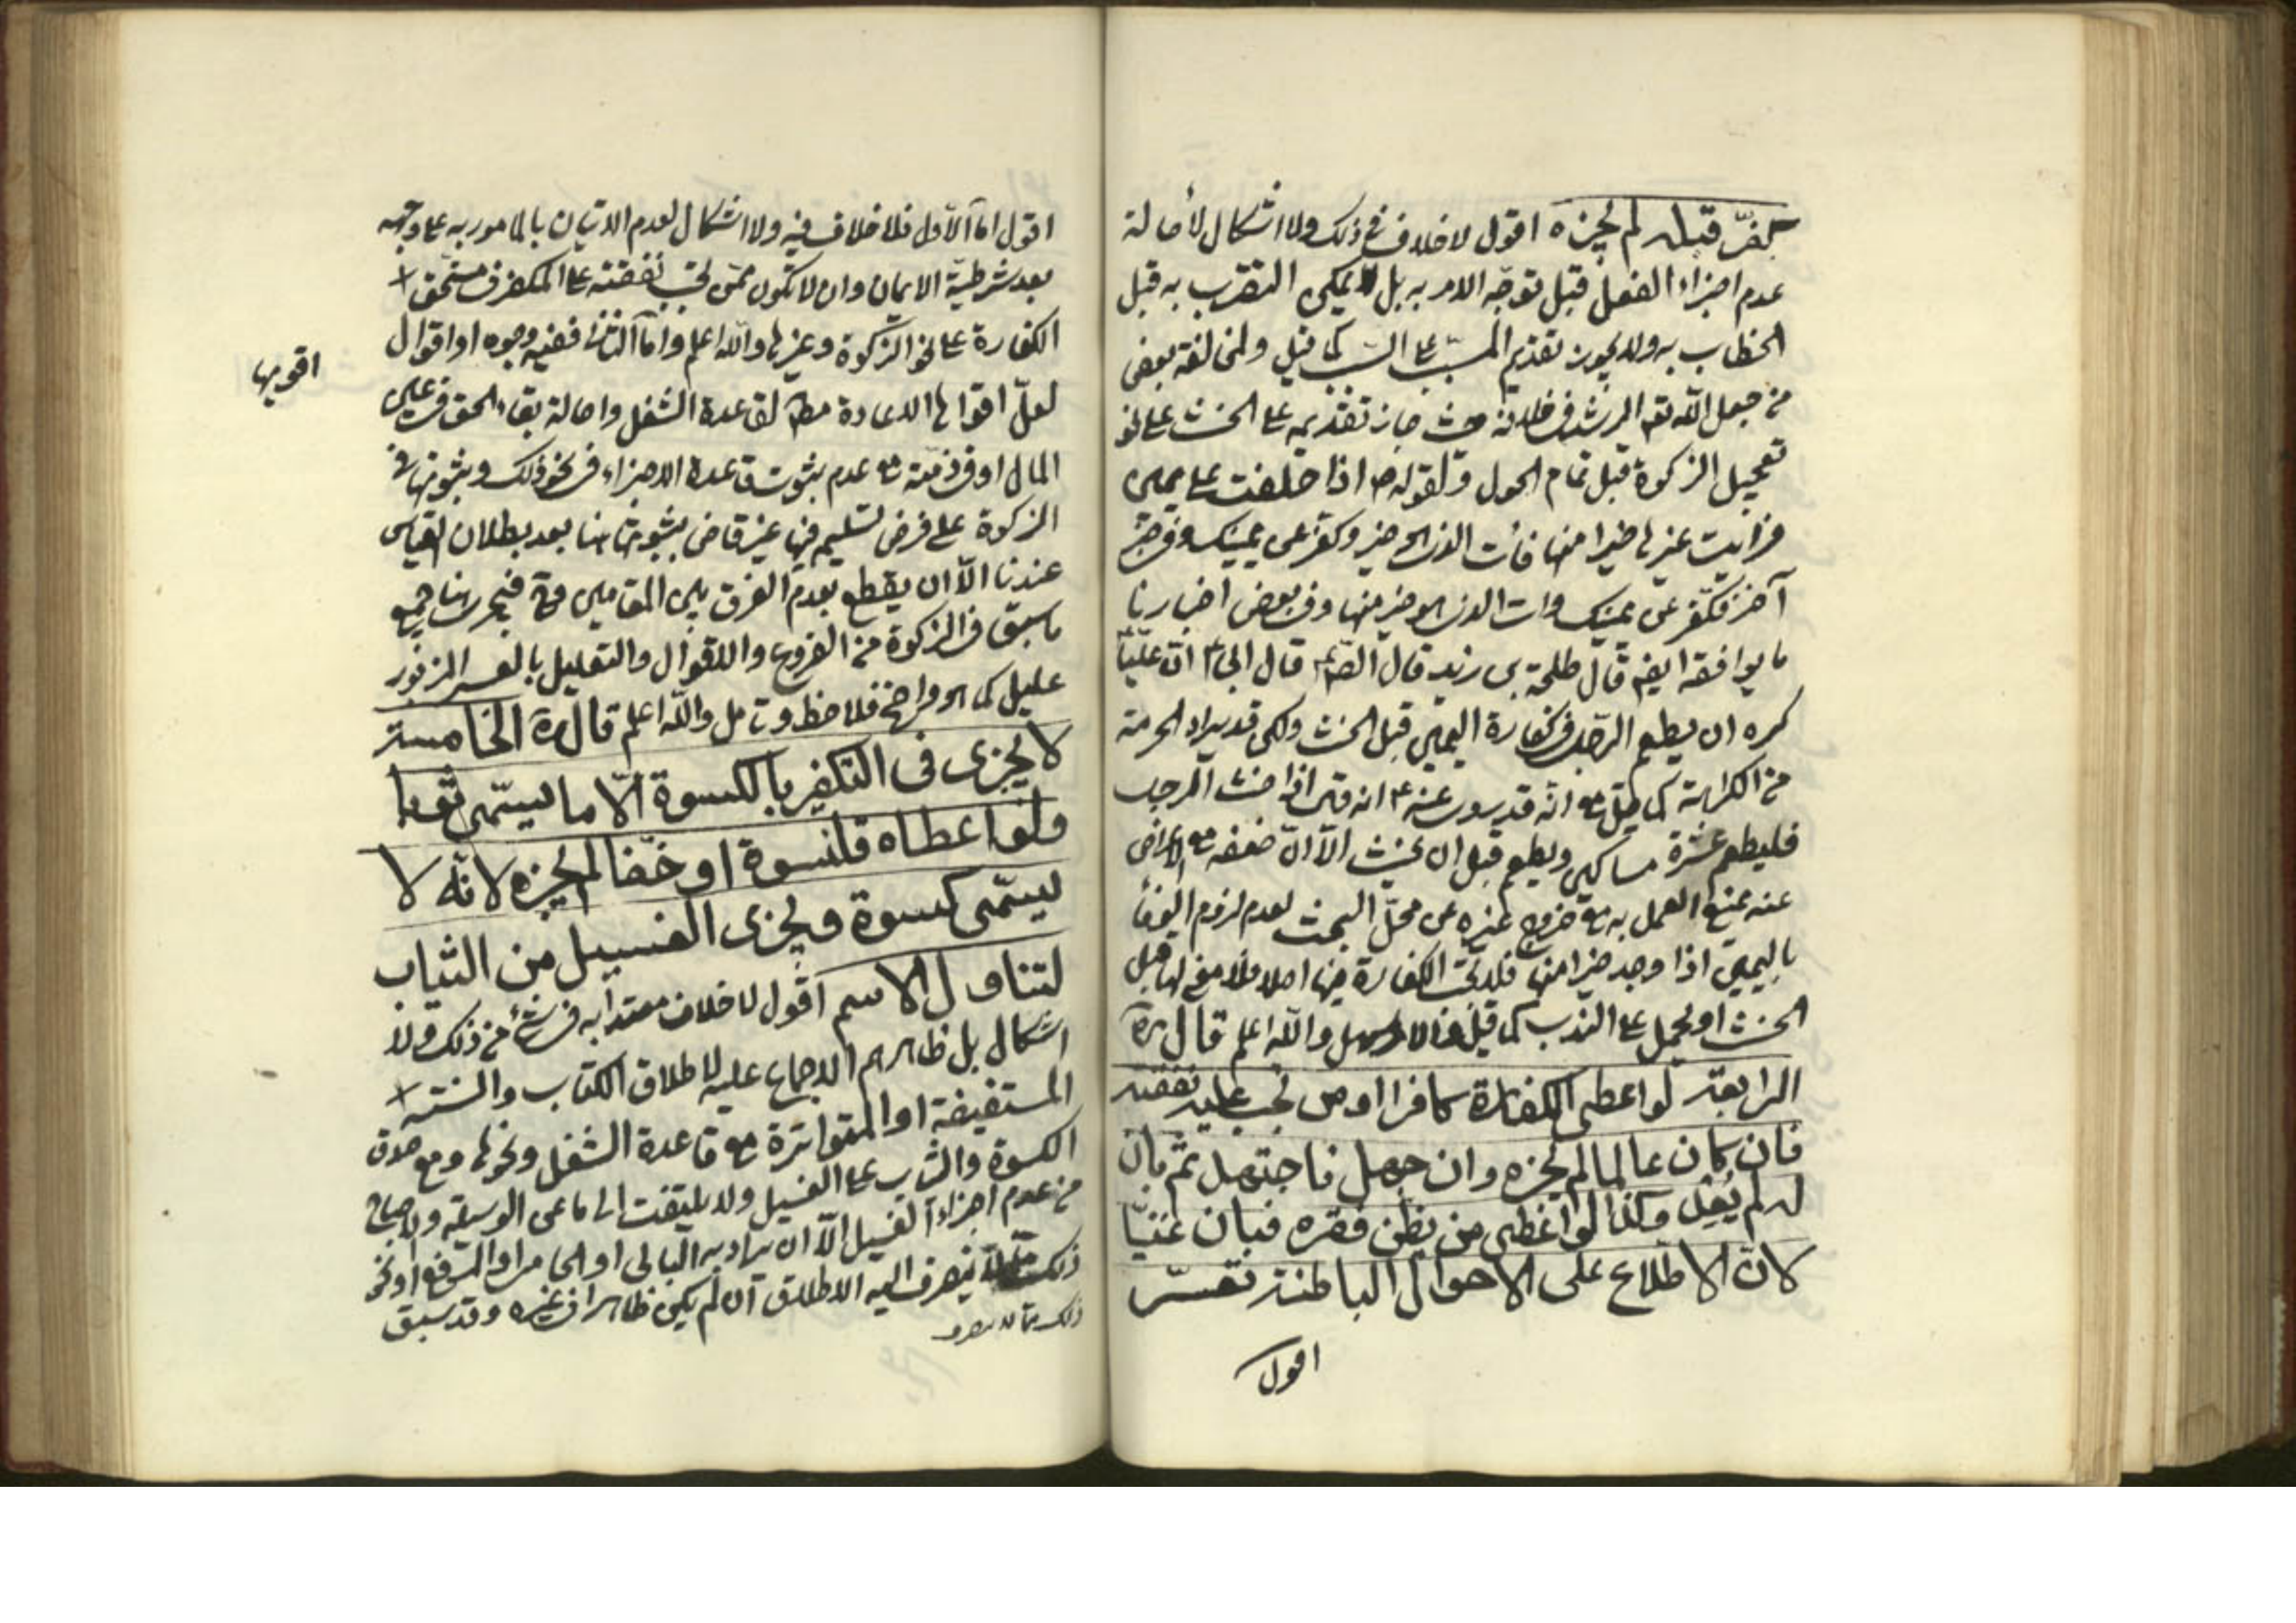 كفّر قبله لم يجزه اقول لا خلاف في ذلك ولا اشكال لأصالة
عدم اجزاء الفعل قبل توجّه الامر به بل لا يمكن التقرب به قبل
الخطاب به ولا يجوز تقديم المسبّب على السبب كما قيل ولمخالفة بعض
من جعل الله تع الرشد في خلافه حيث جاز تقديمه على الحنث على نحو
تعجيل الزكوة قبل تمام الحول ولقوله ص اذا حلفت على يمين
فرايت غيرها خيرا منها فأت الذي هو خير وكفر عن يمينك وفي خبر
آخر فكفّر عن يمينك وات الذي هو خير منها وفي بعض اخبارنا
ما يوافقه ايضا قال طلحة بن زيد قال الصّ ع قال ابي ع ان عليّا ع
كره ان يطعم الرجل في كفارة اليمين قبل الحنث ولكن قد يراد الحرمة
من الكراهة كما قيل مع انه قد روى عنه ع انه قال اذا حنث الرجل
فليطعم عشرة مساكين ويطعم قبل ان يحنث الّا انّ ضعفه مع الاعراض
عنه يمنع العمل به مع خروج غيره عن محلّ البحث لعدم لزوم الوفاء
باليمين اذا وجد خيرا منها فلا تجب الكفارة فيها اصلا فلا معنى لها قبل
الحنث او يحمل على الندب كما قيل والامر سهل والله اعلم قال ره
الرابعة لو اعطى الكفارة كافرا او من تجب عليه نفقته
فان كان عالما لم يجزه وان جهل فاجتهد ثم بان
له لم يعد وكذا لو اعطى من يظن فقره فبان غنيّا
لانّ الاطلاع على الاحوال الباطنة تعسّر
اقول
اقول امّا الاوّل فلا خلاف فيه ولا اشكال لعدم الاتيان بالمامور به على وجهه
بعد شرطيّة الايمان وان لا يكون ممّن تجب نفقته على المكفر في مستحق
الكفارة على نحو الزكوة وغيرها والله اعلم وامّا الثاني ففيه وجوه او اقوال
اقويها
لعلّ اقواها الاعادة مط لقاعدة الشغل واصالة بقاء الحق في عين
المال او في ذمته مع عدم ثبوت قاعدة الاجزاء في نحو ذلك وثبوتها في
الزكوة على فرض تسليم فيها غير قاض بثبوتها هنا بعد بطلان القياس
عندنا الّا ان يقطع بعدم الفرق بين المقامين فيجري هنا جميع
ما سبق في الزكوة من الفروع والاقوال والتعليل بالعسر المزبور
عليل كما هو واضح فلاحظ وتامل والله اعلم قال ره الخامسة
لا يجزى في التكفير بالكسوة الّا ما يسمّى ثوبا
ولو اعطاه قلنسوة او خفّا لم يجزه لانّه لا
يسمّى كسوة ويجزى الغسيل من الثياب
لتناول الاسم اقول لا خلاف معتدا به في شيء من ذلك ولا
اشكال بل ظاهرهم الاجماع عليه لاطلاق الكتاب والسنّة
المستفيضة او المتواترة مع قاعدة الشغل ونحوها ومع صدق
الكسوة والثياب على الغسيل ولا يلتفت الى ما عن الوسيلة والاصباح
من عدم اجزاء الغسيل الّا ان يراد به البالي او المرقع او نحو
ذلك ينصرف اليه الاطلاق ان لم يكن ظاهرا في غيره وقد سبق
ذلك ممّا لا ينصرف